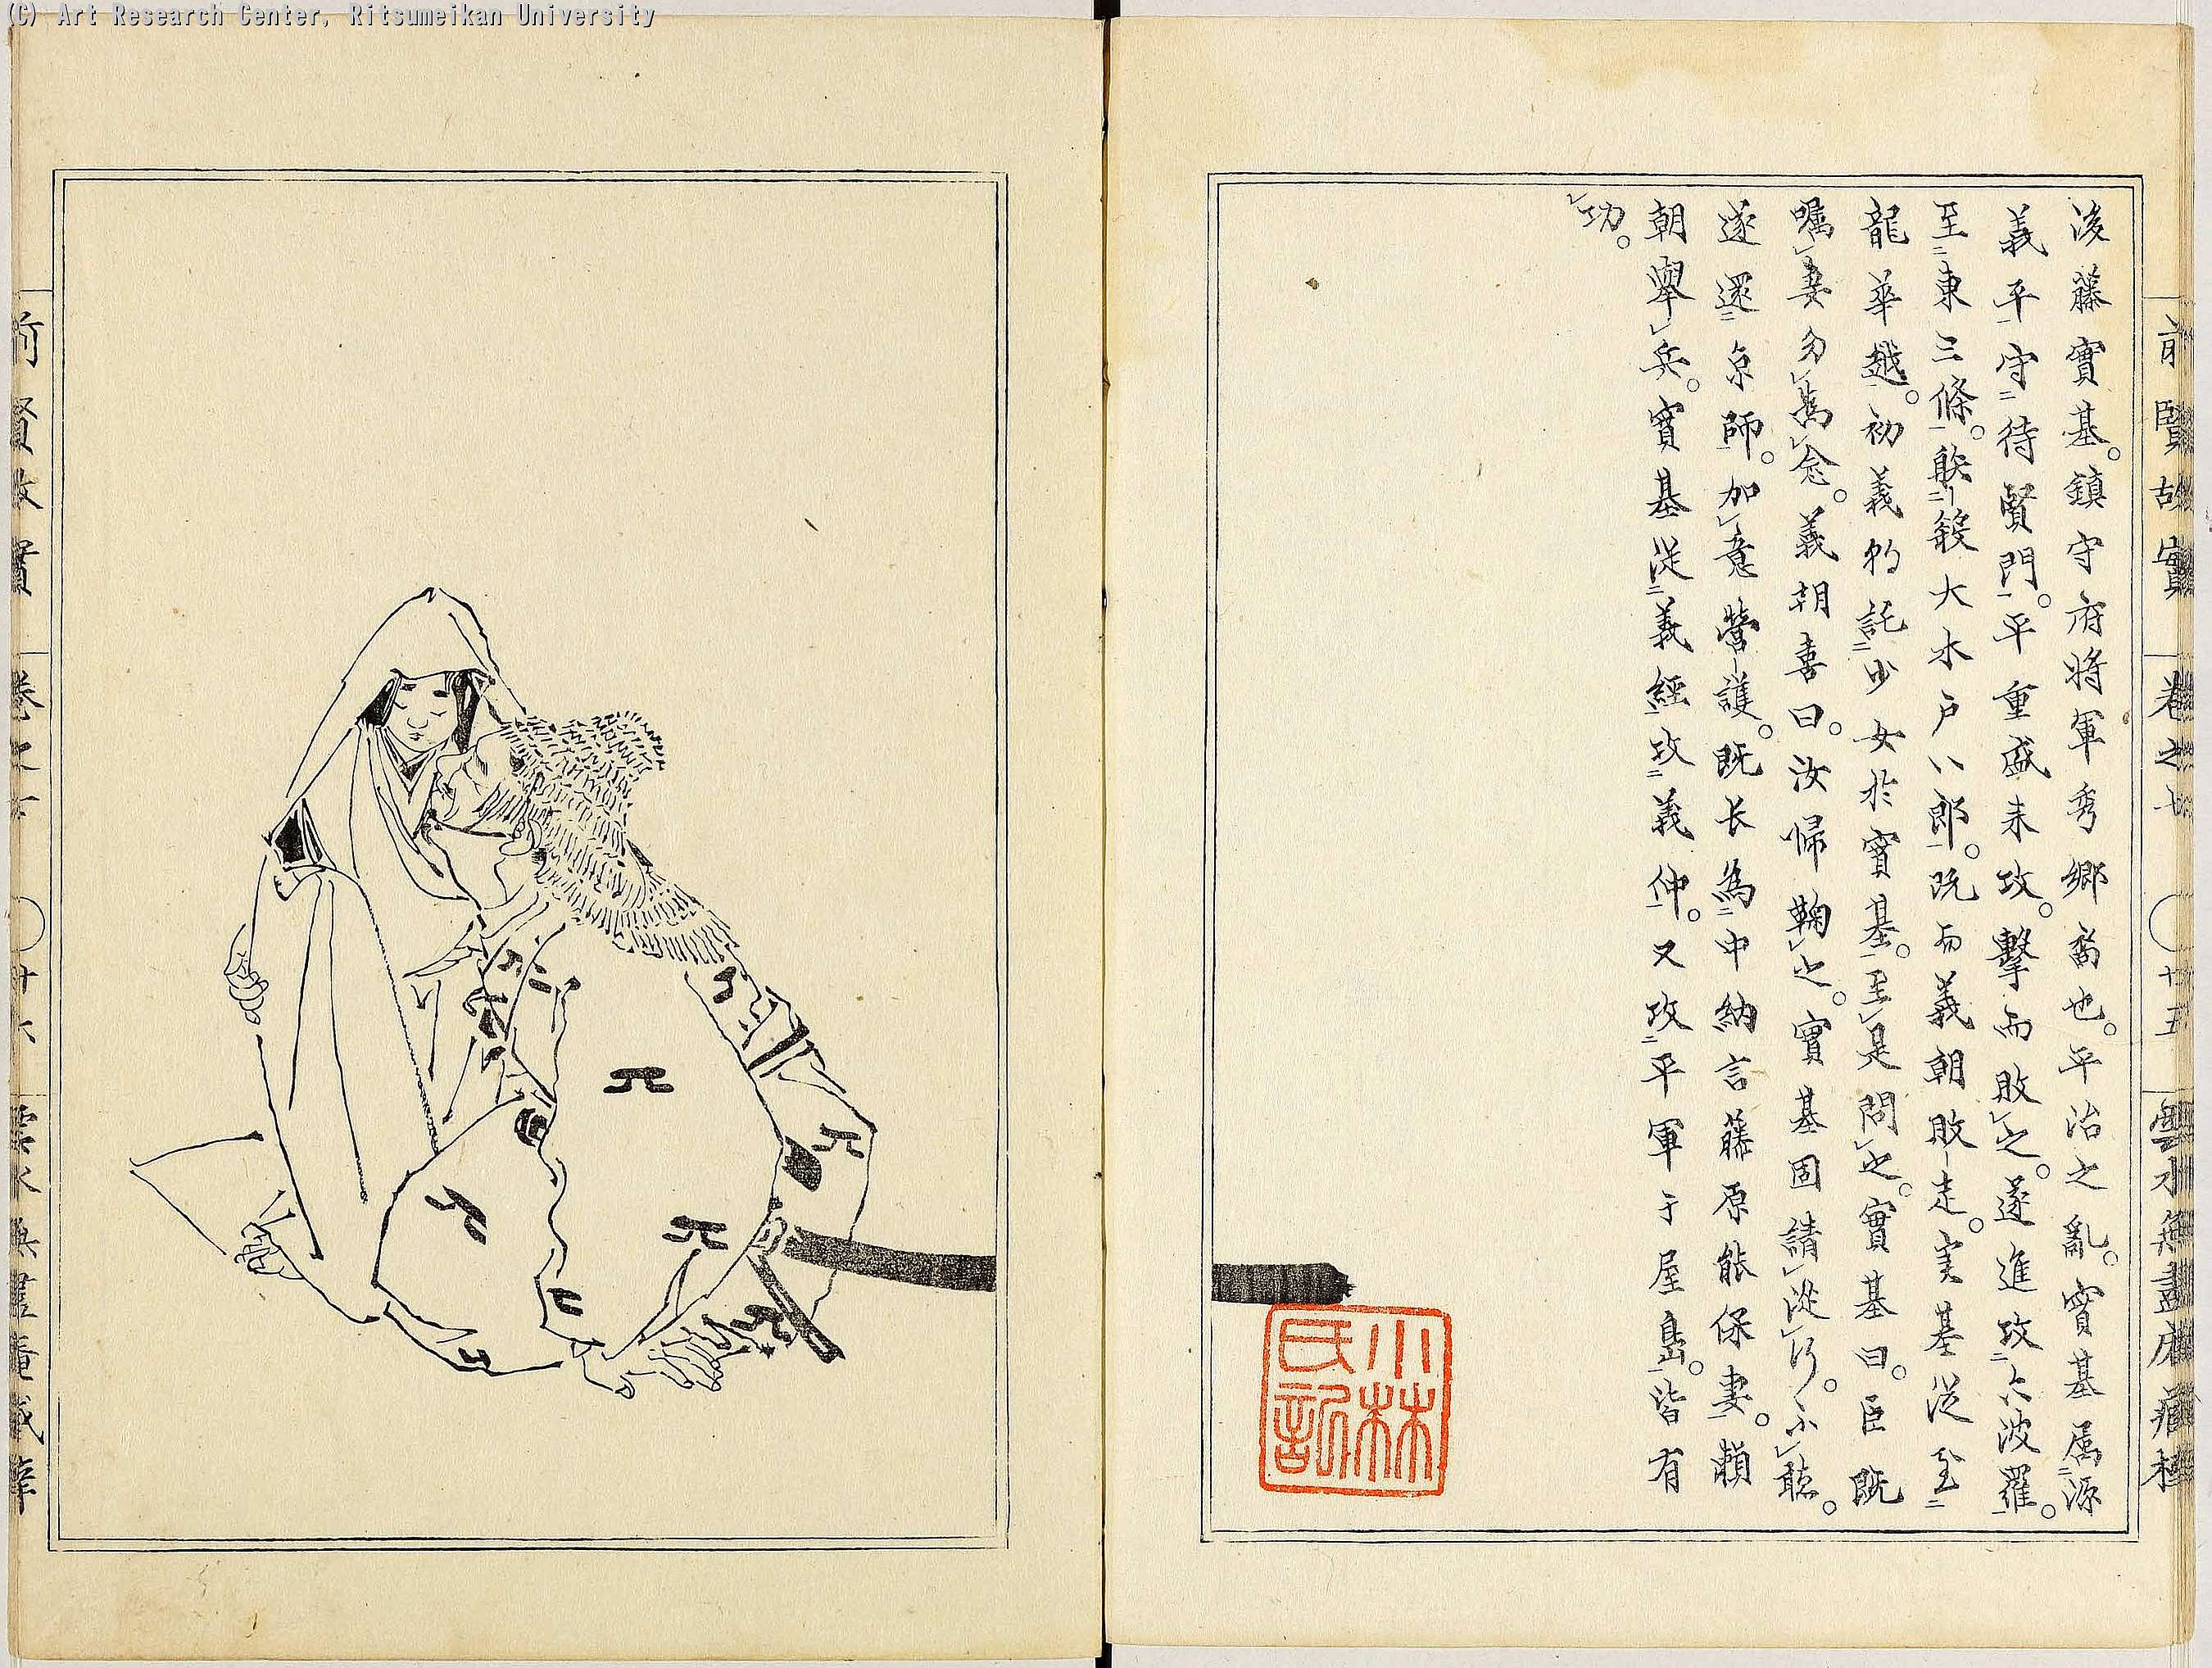 (C) Art Research Center, Ritsumeikan University
前賢故實 卷之七 十五 雲水無盡庵藏梓
後藤實基。鎮守府將軍秀郷裔也。平治之亂。實基属源
義平守待賢門。平重盛来攻。擊而敗之。遂進攻六波羅。
至東三條。射殺大木戸八郎。既而義朝敗走。実基従至
龍華越。初義朝託少女於實基。至是問之。實基曰。臣既
嘱妻勿為念。義朝喜曰。汝帰鞠之。實基固請従行。不聽。
遂還京師。加意營護。既长為中納言藤原能保妻。頼
朝舉兵。實基従義經攻義仲。又攻平軍于屋島。皆有
功。
小林氏記
前賢故實 卷之七 十六 雲水無盡庵藏梓